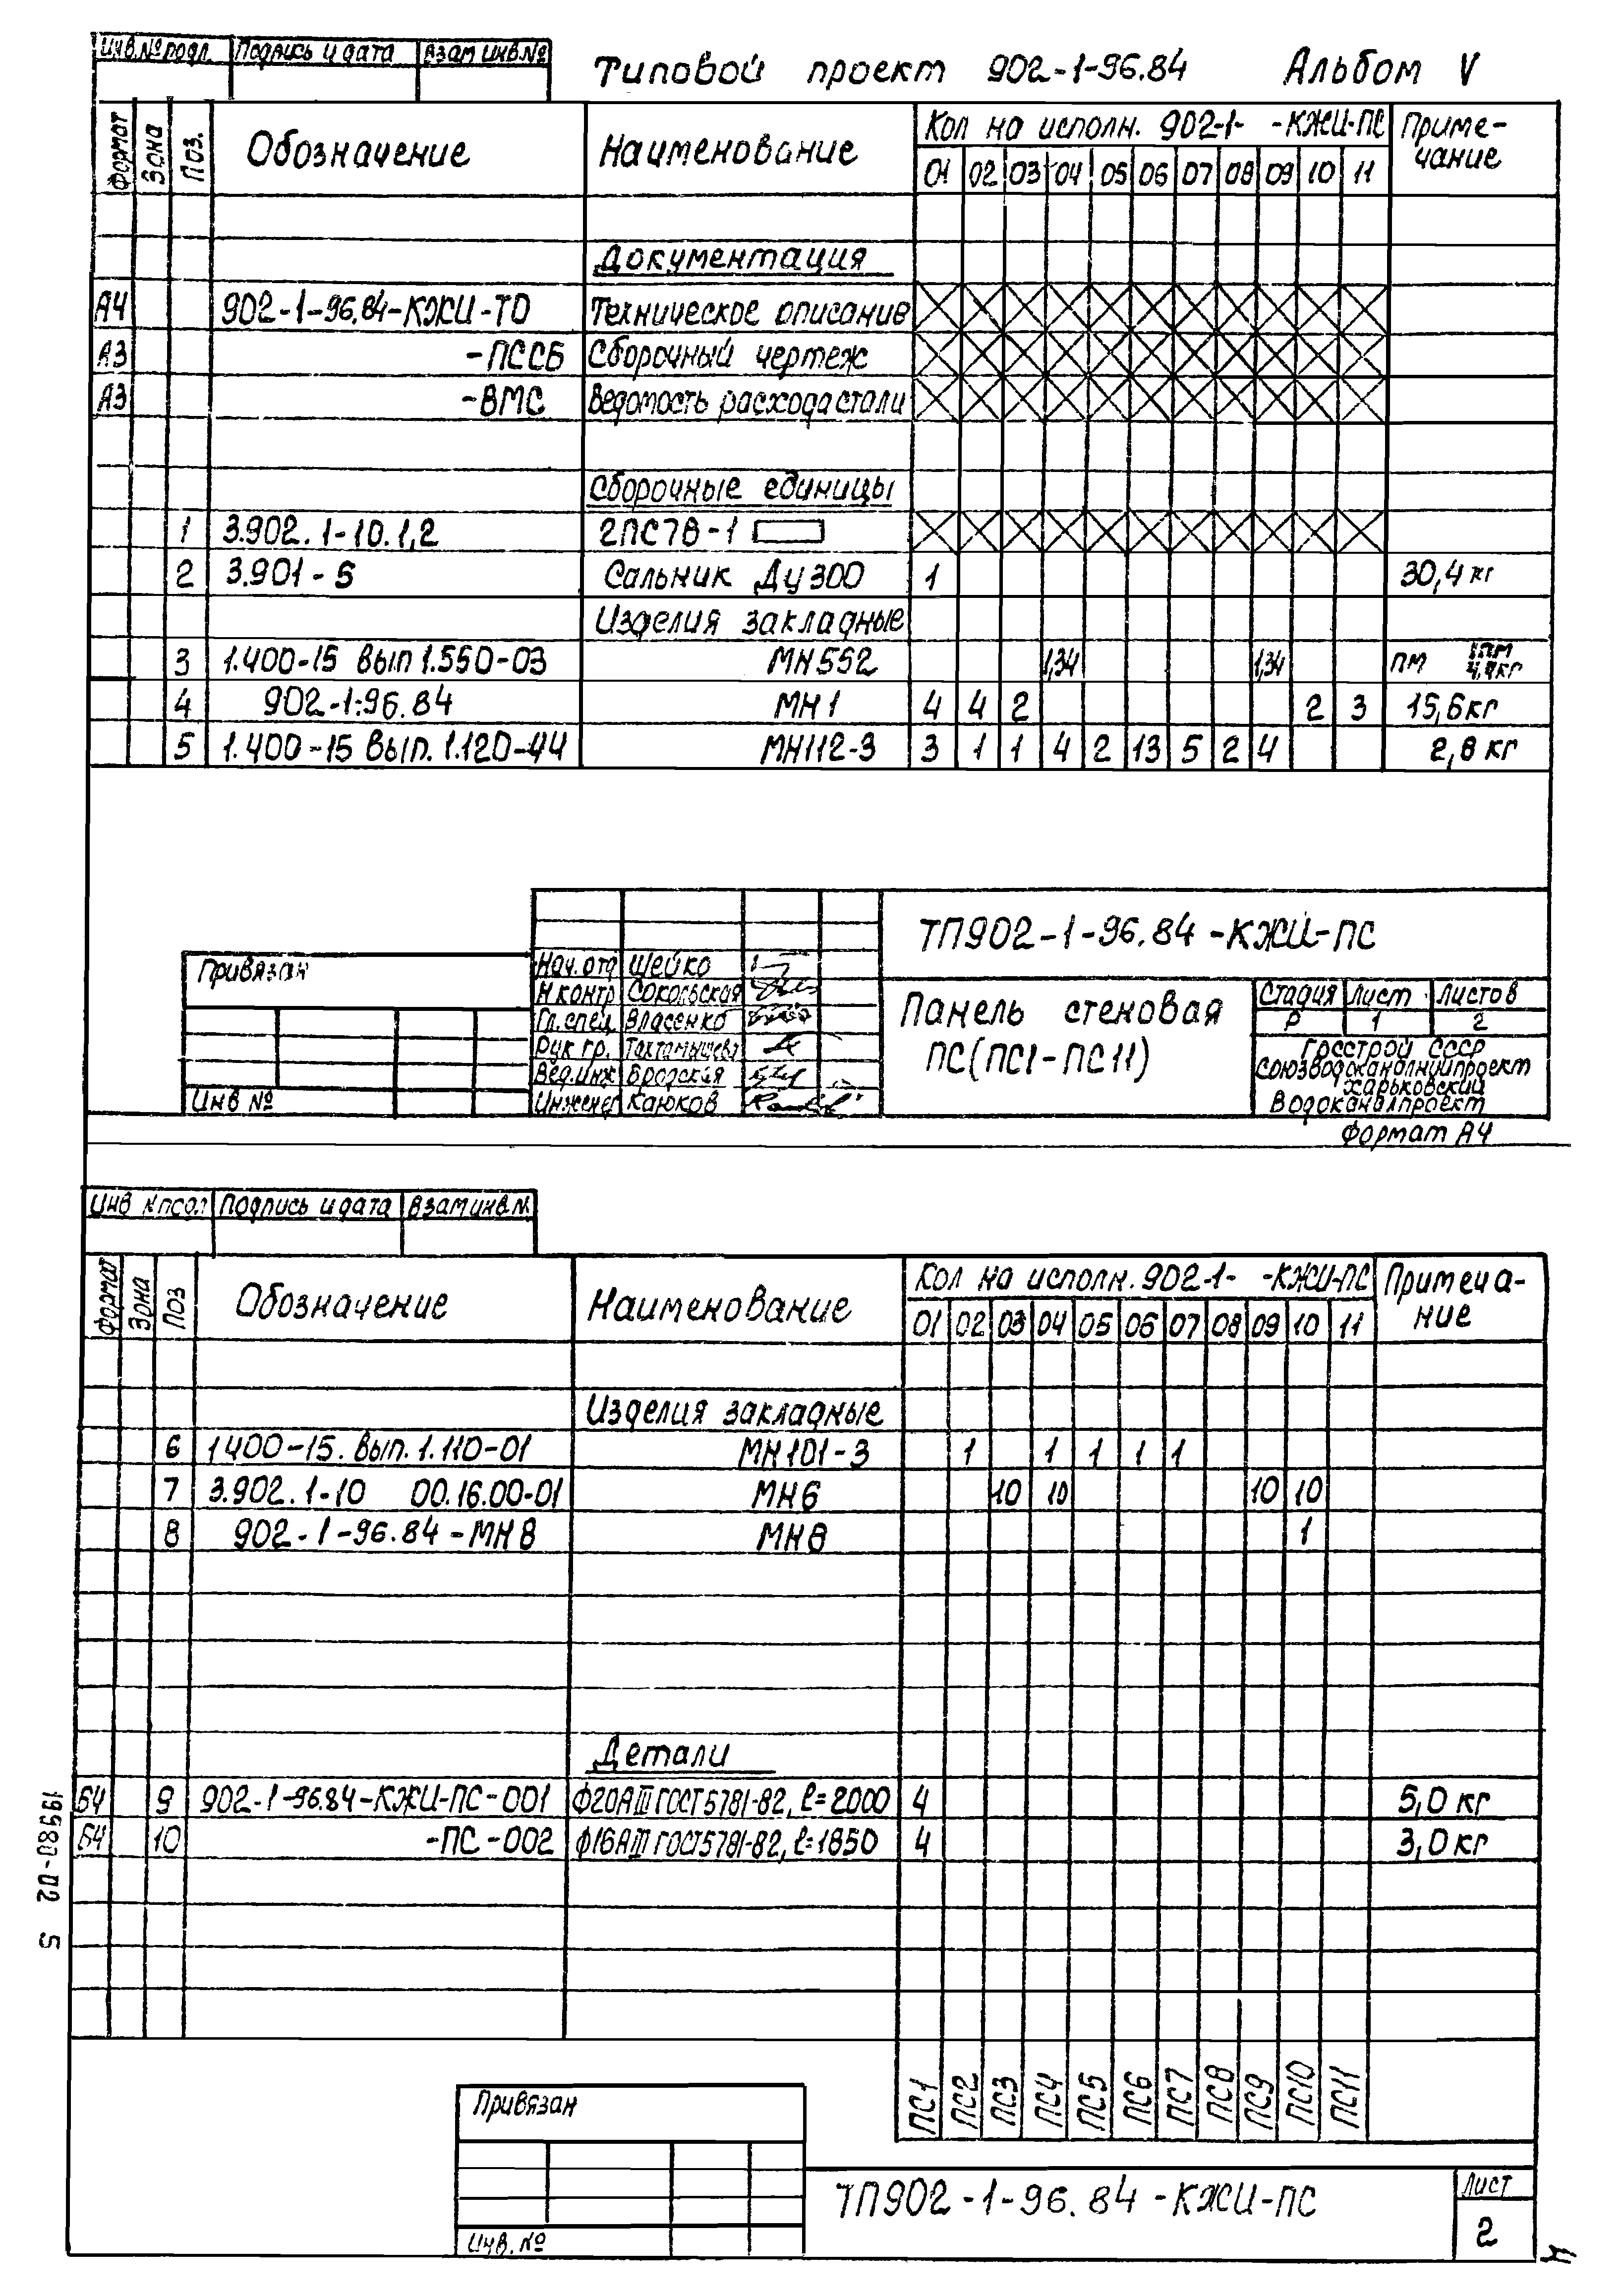 Инв.№подл. Подпись и дата Взам инв.№
Типовой проект 902-1-96.84 Альбом V
Формат Зона Поз. Обозначение Наименование Кол на исполн. 902-1- -КЖИ-ПС Приме-
чание
01 02 03 04 05 06 07 08 09 10 11
Документация
А4 902-1-96.84-КЖИ-ТО Техническое описание
А3 -ПССБ Сборочный чертеж
А3 -ВМС Ведомость расхода стали
Сборочные единицы
1 3.902.1-10.1,2 2ПС78-1
2 3.901-5 Сальник Ду300 1 30,4 кг
Изделия закладные
3 1.400-15 Вып 1.550-03 МН552 1,34 1,34 пм 1пм
4 902-1-96.84 МН1 4 4 2 2 3 15,6кг
5 1.400-15 Вып. 1.120-44 МН112-3 3 1 1 4 2 13 5 2 4 2,8 кг
ТП902-1-96.84-КЖИ-ПС
Привязан
Нач. отд Шейко
Н контр Сокольская
Гл. спец. Власенко
Рук гр.
Вед.инж Бродская
Инженер Каюков
Инв №
Панель стеновая
ПС(ПС1-ПС11)
Стадия Лист Листов
Р 1 2
Госстрой СССР
Союзводоканалниипроект
Харьковский
Водоканалпроект
Формат А4
Инв Подпись и дата Взам инв.№
Формат Зона Поз Обозначение Наименование Кол на исполн. 902-1- -КЖИ-ПС Примеча-
ние
01 02 03 04 05 06 07 08 09 10 11
Изделия закладные
6 1400-15. Вып. 1.110-01 МН101-3 1 1 1 1 1
7 3.902.1-10 00.16.00-01 МН6 10 10 10 10
8 902-1-96.84-МН8 МН8 1
Детали
Б4 9 902-1-96.84-КЖИ-ПС-001 Ф20АIII ГОСТ5781-82, ℓ=2000 4 5,0 кг
Б4 10 -ПС-002 Ф16АIII ГОСТ5781-82, ℓ=1850 4 3,0 кг
19980-02 5
ПС1 ПС2 ПС3 ПС4 ПС5 ПС6 ПС7 ПС8 ПС9 ПС10 ПС11
Привязан
Инв. №
ТП902-1-96.84-КЖИ-ПС
Лист
2